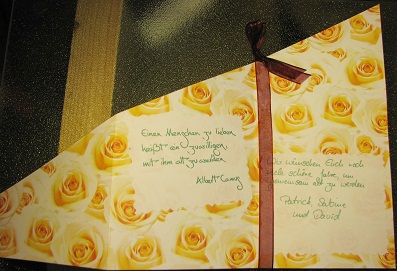 Einen Menschen zu lieben
heißt einzuwilligen,
mit ihm alt zu werden.
Albert Camus
Wir wünschen Euch noch
viele schöne Jahre, um
gemeinsam alt zu werden
Patrick, Sabine
und David